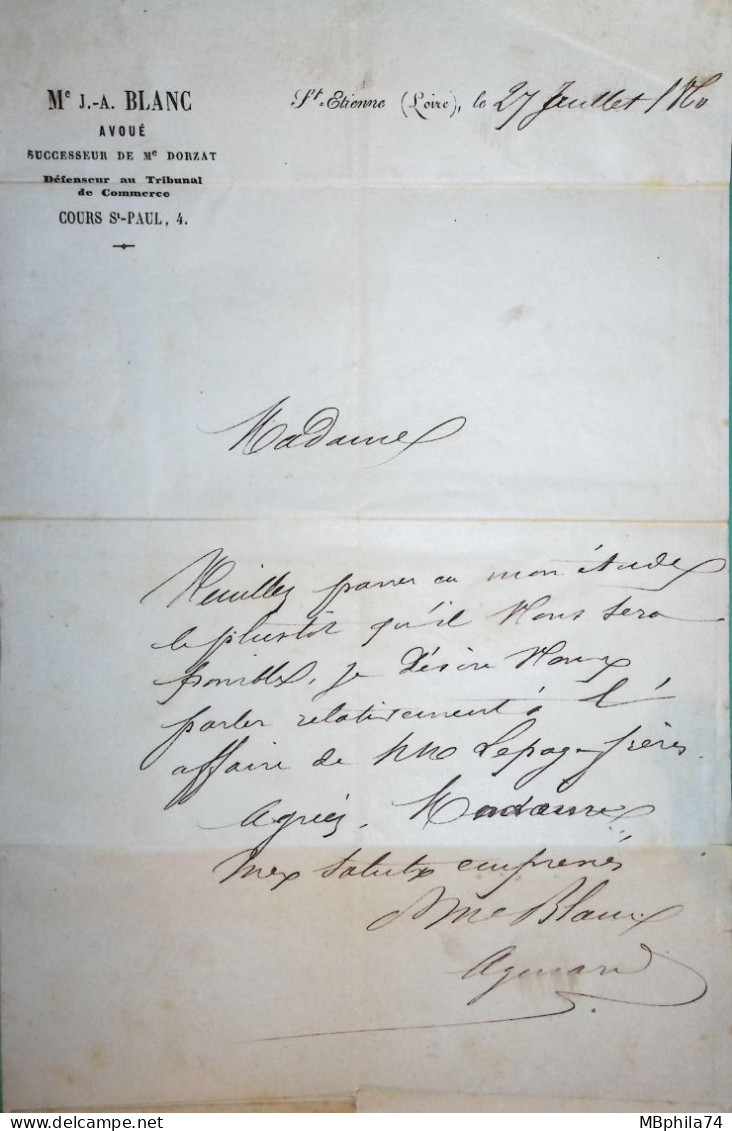 Me J.-A. BLANC
AVOUÉ
SUCCESSEUR DE Me DORZAT
Défenseur au Tribunal
de Commerce
COURS St-PAUL, 4.
St-Etienne (Loire), le 27 Juillet
Madame
Veuillez passer en mon étude
le plustôt qu'il vous sera
possible, je désire vous
parler relativement à l'
affaire de MM Lepage frères.
Agréez, Madame
mes saluts empressés
Me Blanc
delcampe.net
MBphila74